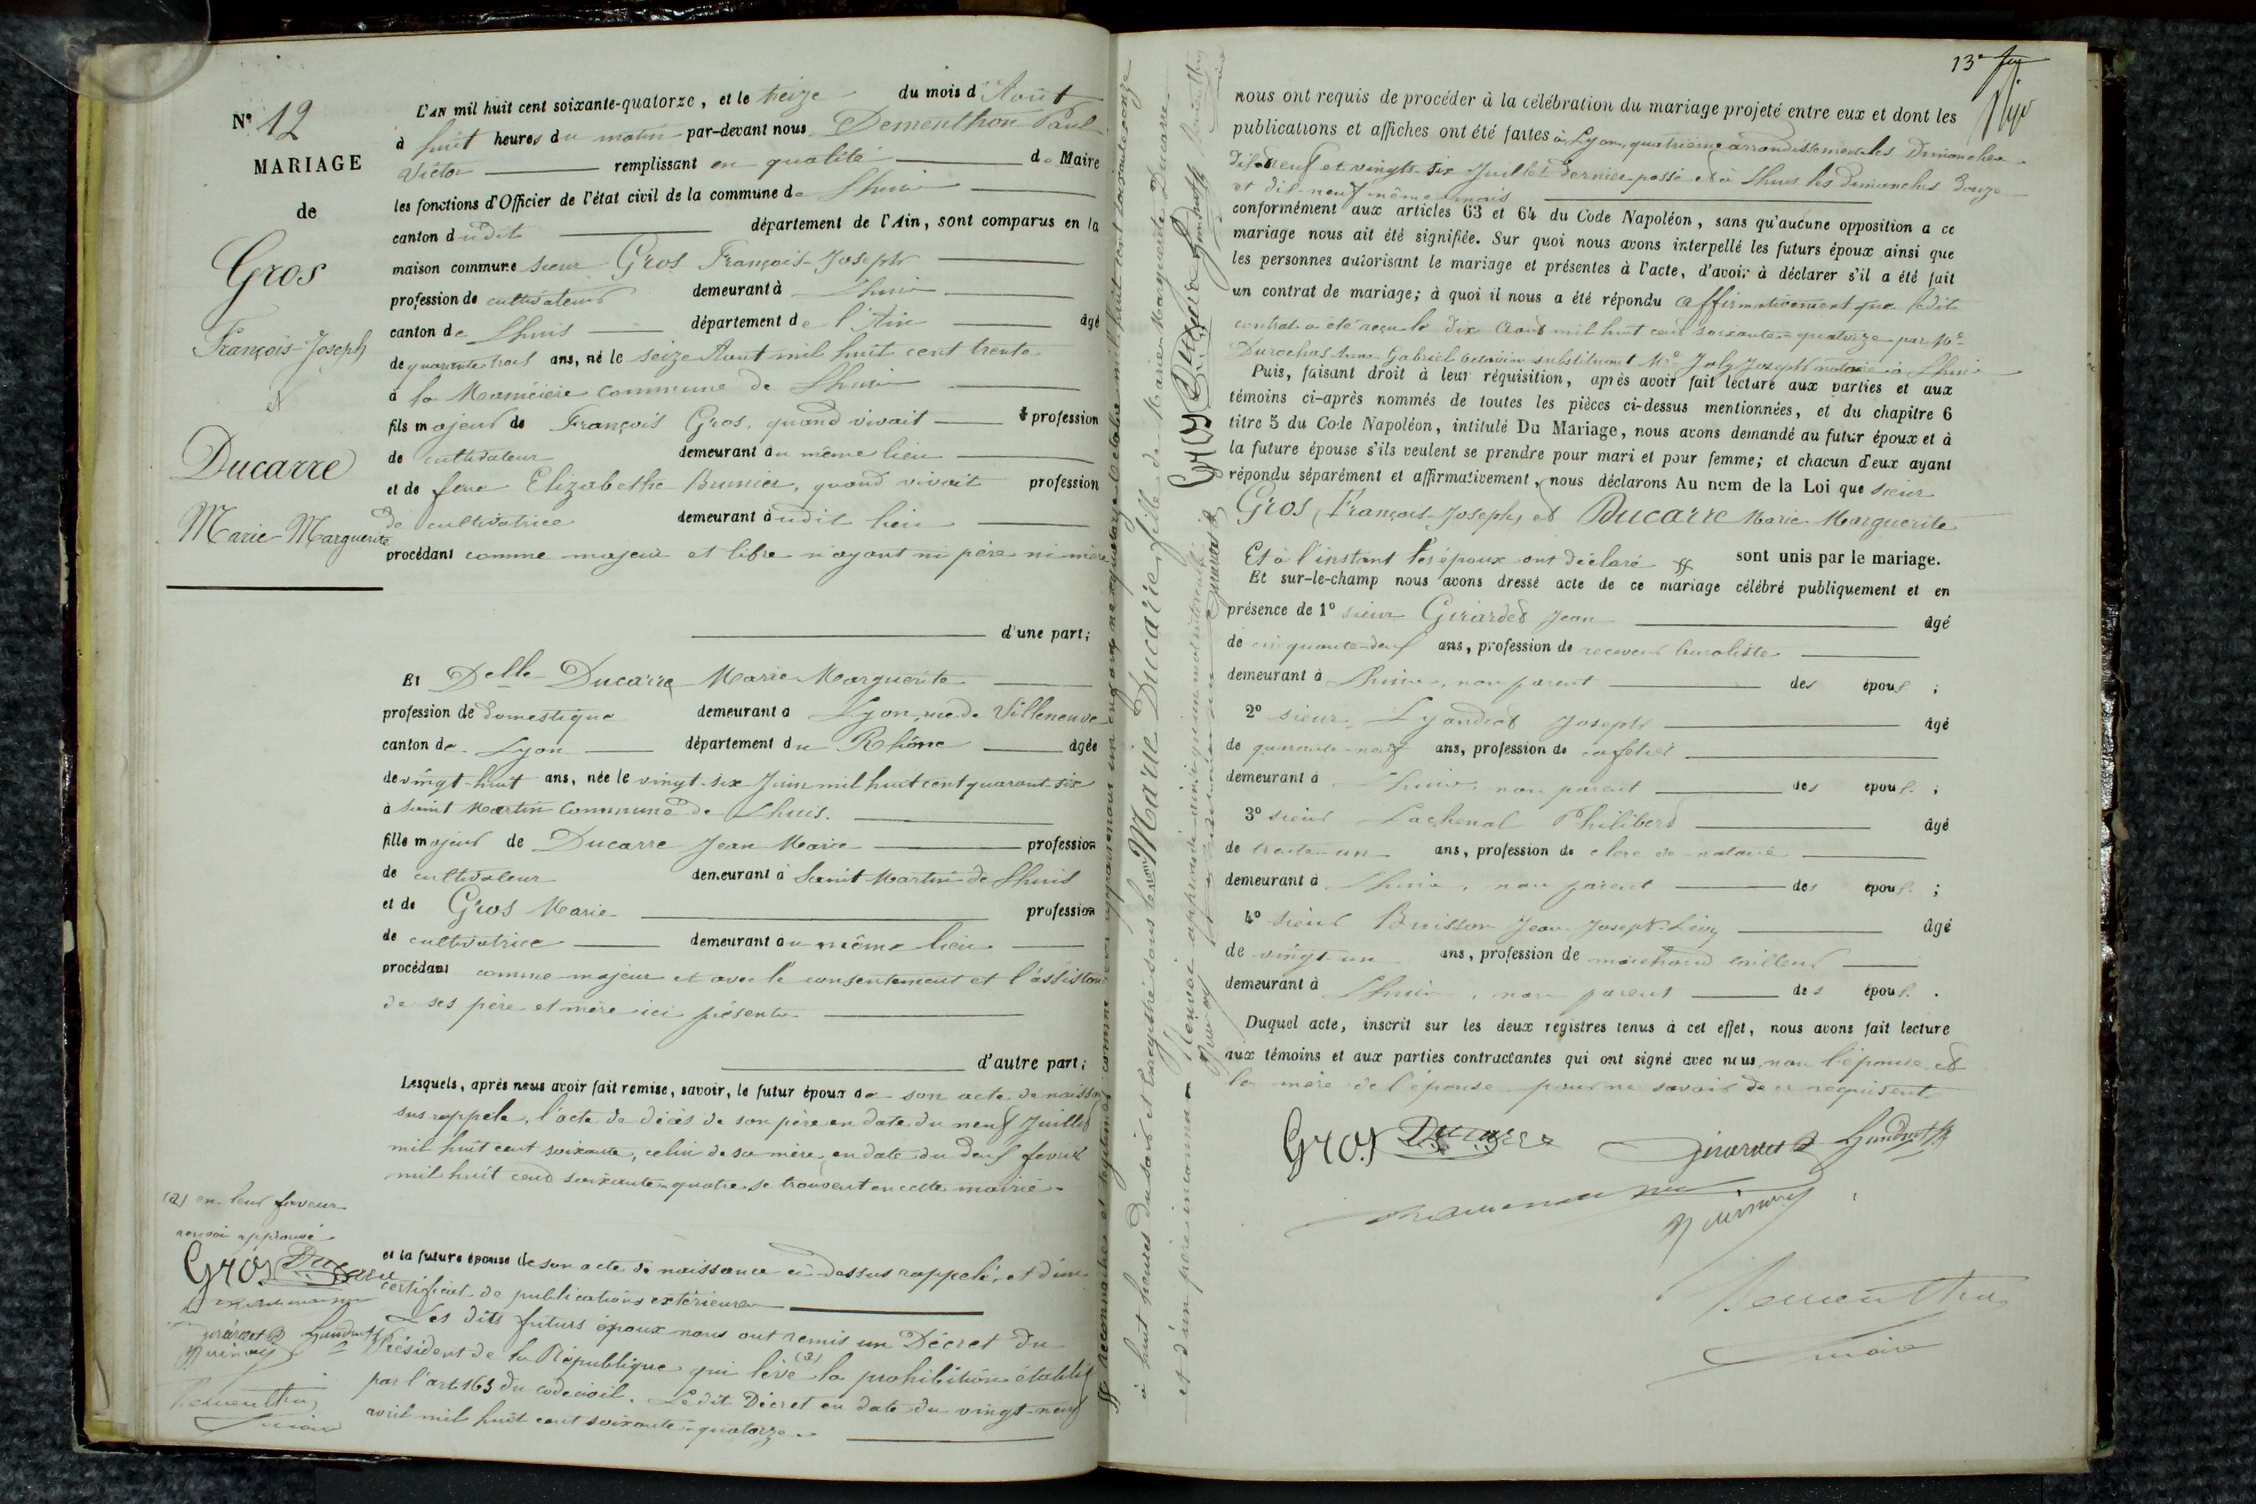 N° 12
MARIAGE
de
Gros
François-Joseph
et
Ducarre
Marie-Marguerite
L'AN mil huit cent soixante-quatorze, et le treize du mois d'Août
à huit heures du matin par-devant nous Dementhon Paul
Victor remplissant en qualité de Maire
les fonctions d'Officier de l'état civil de la commune de Lhuis
canton dudit département de l'Ain, sont comparus en la
maison commune sieur Gros François-Joseph
profession de cultivateur demeurant à Lhuis
canton de Lhuis département de l'Ain âgé
de quarante trois ans, né le seize Aout mil huit cent trente
à la commune de Lhuis
fils majeur de François Gros, quand vivait profession
de cultivateur demeurant au même lieu
et de feue Elizabethe Brunier, quand vivait profession
de cultivatrice demeurant audit lieu
procédant comme majeur et libre n'ayant ni père ni mère
d'une part;
Et Delle Ducarre Marie Marguerite
profession de domestique demeurant à Lyon, rue de Villeneuve
canton de Lyon département du Rhône âgée
de vingt-huit ans, née le vingt-six Juin mil huit cent quarant-six
à Saint Martin commune de Lhuis.
fille majeur de Ducarre Jean Marie profession
de cultivateur demeurant à Saint-Martin de Lhuis
et de Gros Marie profession
de cultivatrice demeurant au même lieu
procédant comme majeur et avec le consentement et l'assistance
de ses père et mère ici présents
d'autre part;
Lesquels, après nous avoir fait remise, savoir, le futur époux de son acte de naissance
sus rappelé, l'acte de décès de son père en date du neuf Juillet
mil huit cent soixante, celui de sa mère, en date du deux fevrier
mil huit cent soixante-quatre se trouvent en cette mairie
et la future épouse de son acte de naissance ci-dessus rappelé, et d'un
certificat de publications extérieures
Les dits futurs époux nous ont remis un Décret du
Président de la République qui lève (a) la prohibition établie
par l'art. 163 du code civil. Ledit Décret en date du vingt-neuf
avril mil huit cent soixante-quatorze
(a) en leur faveur
renvoi approuvé
Gros Ducarre
Girardet Lyandrat
Buisson
Dementhon
maire
ff reconnaitre et légitimer comme
à huit heures du soir et Enregistré sous le nom Marie Ducarre, fille de Marie Marguerite Ducarre
et d'un père inconnu
Renvoi approuvé ainsi
Gros Ducarre Lyandrat
Girardet
Buisson
13e feu
nous ont requis de procéder à la célébration du mariage projeté entre eux et dont les
publications et affiches ont été faites à Lyon, quatrième arrondissement les Dimanches
dix-neuf et vingt-six Juillet dernier passé et à Lhuis les dimanches douze
et dix-neuf même mois
conformément aux articles 63 et 64 du Code Napoléon, sans qu'aucune opposition a ce
mariage nous ait été signifiée. Sur quoi nous avons interpellé les futurs époux ainsi que
les personnes autorisant le mariage et présentes à l'acte, d'avoir à déclarer s'il a été fait
un contrat de mariage; à quoi il nous a été répondu affirmativement que ledit
contrat a été reçu le dix Aout mil huit cent soixante-quatorze par Me
Gabriel substituant Me Joly Joseph notaire à Lhuis
Puis, faisant droit à leur réquisition, après avoir fait lecture aux parties et aux
témoins ci-après nommés de toutes les pièces ci-dessus mentionnées, et du chapitre 6
titre 5 du Code Napoléon, intitulé Du Mariage, nous avons demandé au futur époux et à
la future épouse s'ils veulent se prendre pour mari et pour femme; et chacun d'eux ayant
répondu séparément et affirmativement, nous déclarons Au nom de la Loi que sieur
Gros, François-Joseph, et Ducarre Marie-Marguerite
sont unis par le mariage.
Et à l'instant les époux ont déclaré ff
Et sur-le-champ nous avons dressé acte de ce mariage célébré publiquement et en
présence de 1° sieur Girardet Jean âgé
de cinquante-deux ans, profession de receveur buraliste
demeurant à Lhuis, non parent des époux;
2° sieur Lyandrat Joseph âgé
de quarante-neuf ans, profession de cafetier
demeurant à Lhuis, non parent des époux;
3° sieur Lachenal Philibert âgé
de trente-un ans, profession de clerc de notaire
demeurant à Lhuis, non parent des époux;
4° sieur Buisson Jean Joseph âgé
de vingt-un ans, profession de marchand tailleur
demeurant à Lhuis, non parent des époux.
Duquel acte, inscrit sur les deux registres tenus à cet effet, nous avons fait lecture
aux témoins et aux parties contractantes qui ont signé avec nous, non l'épouse et
la mère de l'épouse pour ne savoir de ce requises
Gros Ducarre Girardet Lyandrat
Buisson
Dementhon
maire